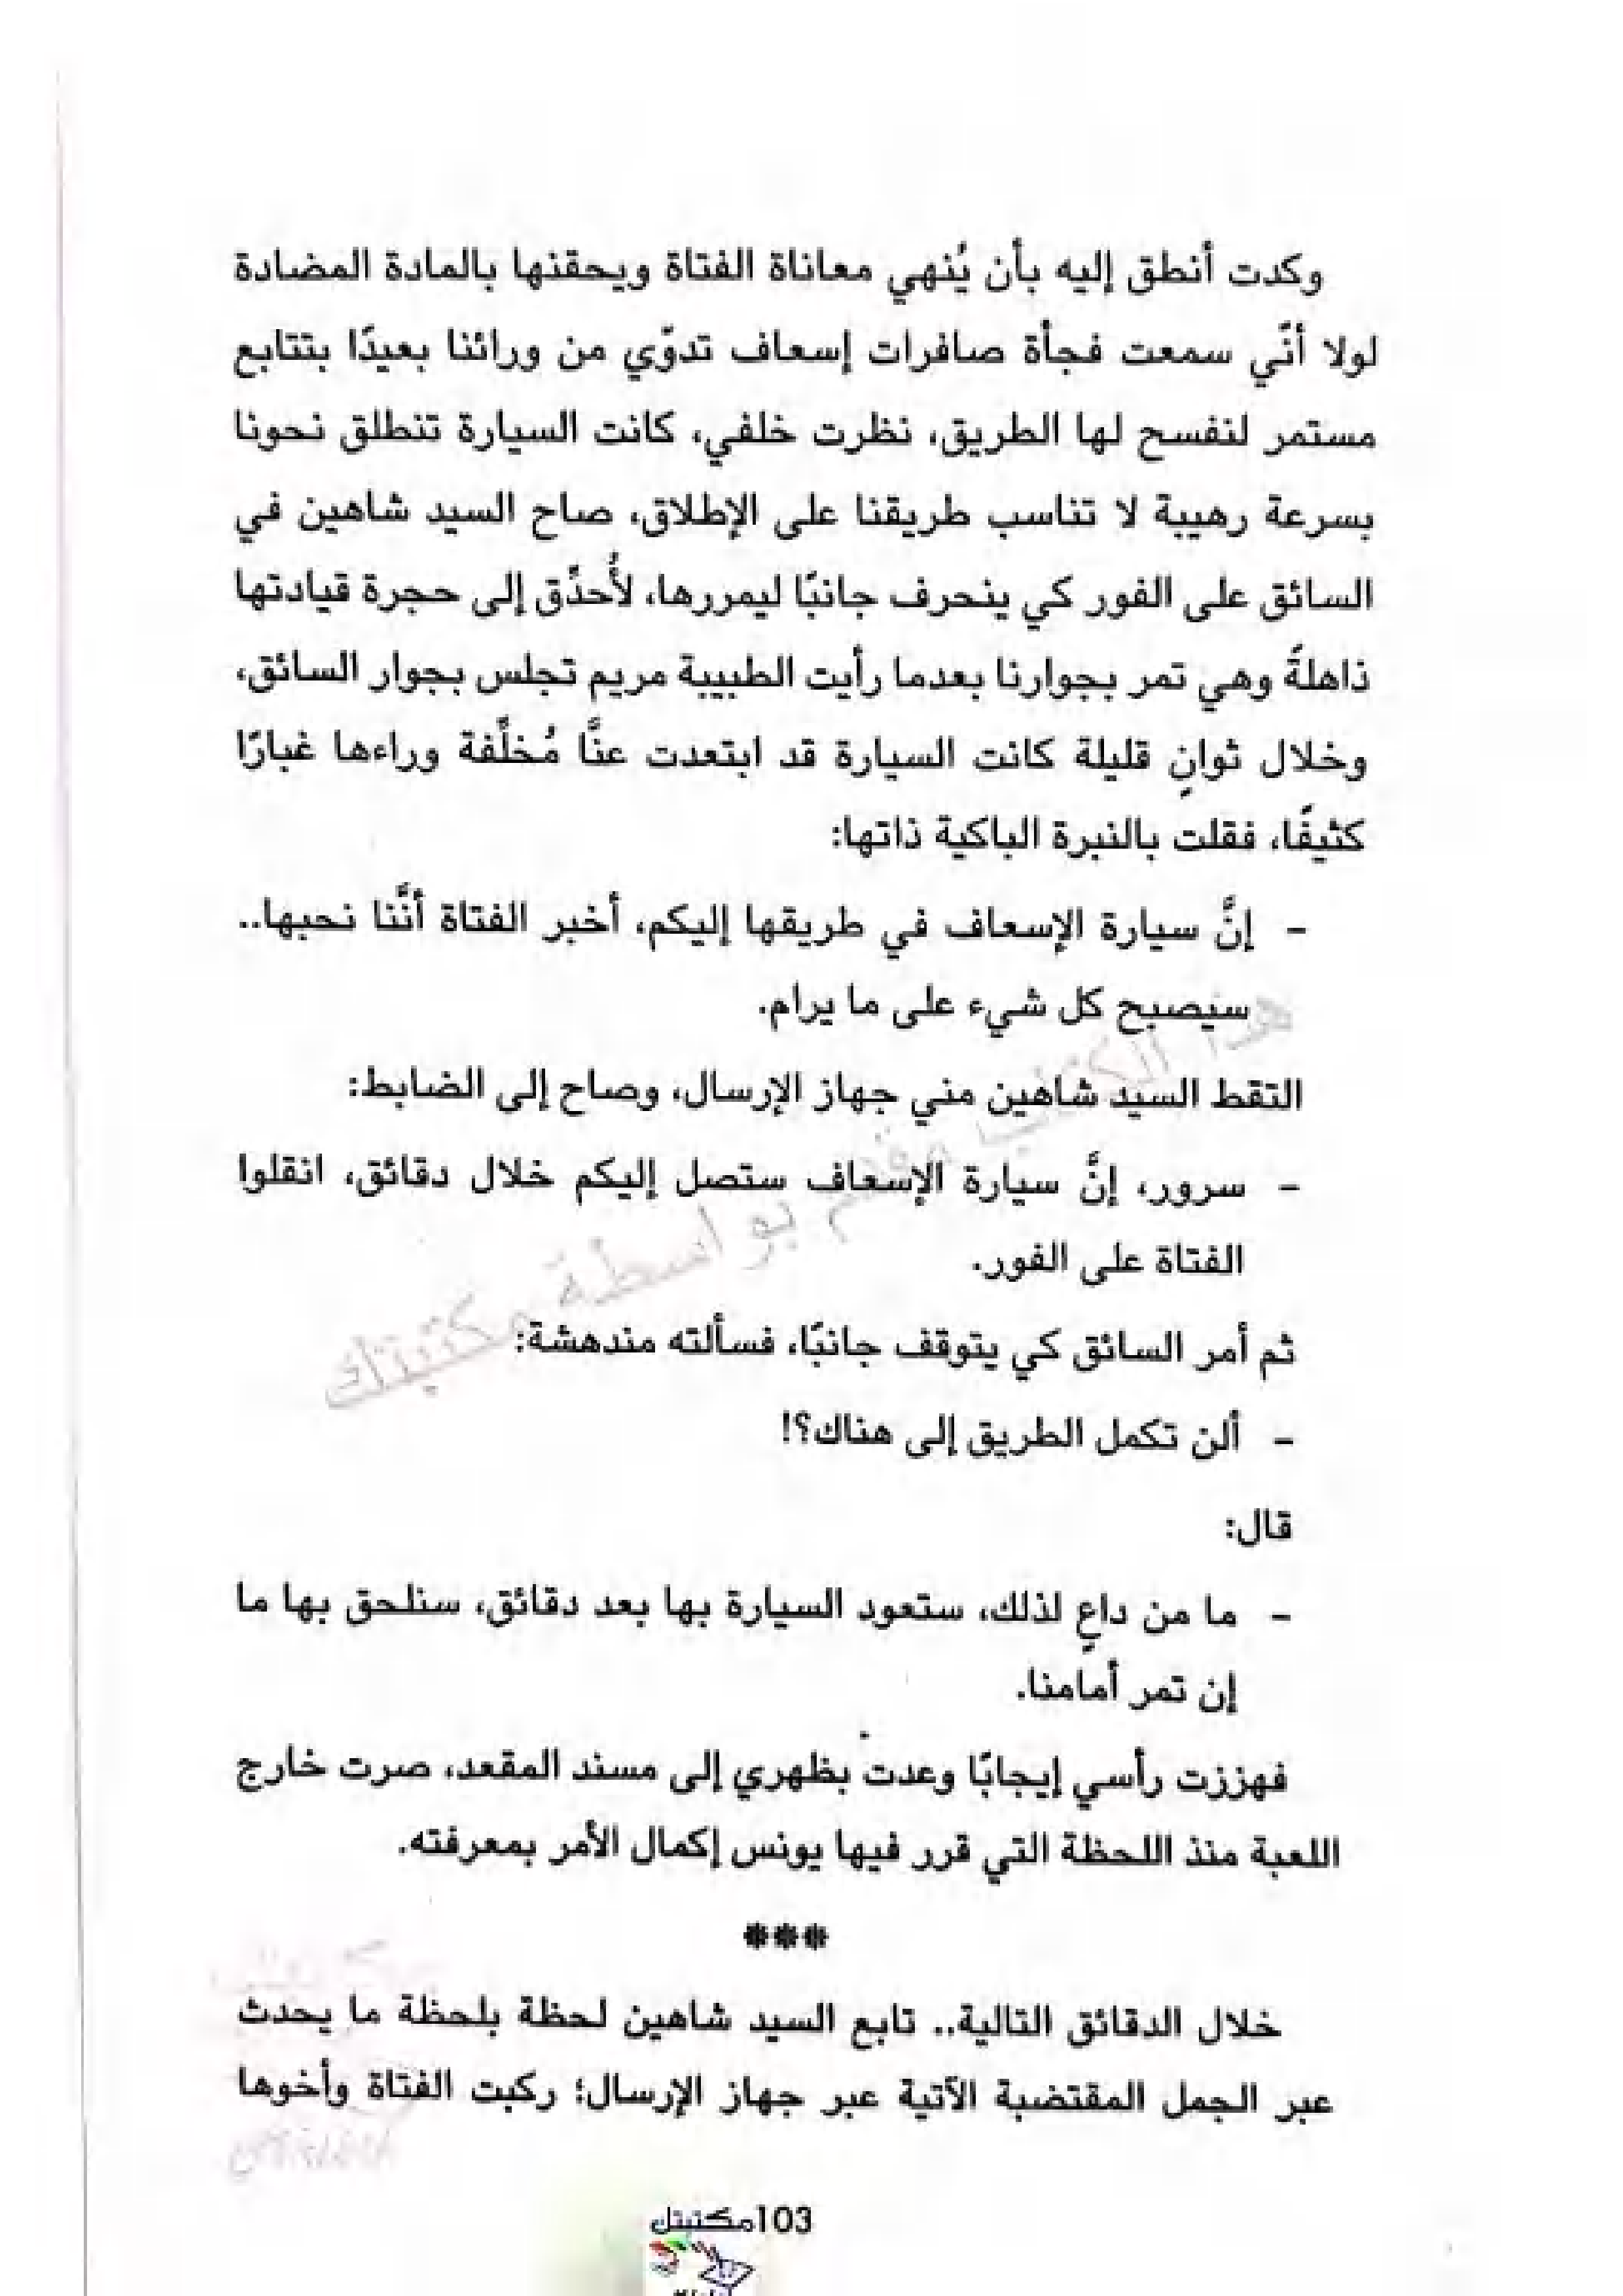 وكدت أنطق إليه بأن يُنهي معاناة الفتاة ويحقنها بالمادة المضادة
لولا أنّي سمعت فجأة صافرات إسعاف تدوّي من ورائنا بعيدًا بتتابع
مستمر لنفسح لها الطريق، نظرت خلفي، كانت السيارة تنطلق نحونا
بسرعة رهيبة لا تناسب طريقنا على الإطلاق، صاح السيد شاهين في
السائق على الفور كي ينحرف جانبًا ليمررها، لأُحدِّق إلى حجرة قيادتها
ذاهلةً وهي تمر بجوارنا بعدما رأيت الطبيبة مريم تجلس بجوار السائق،
وخلال ثوانٍ قليلة كانت السيارة قد ابتعدت عنَّا مُخلِّفة وراءها غبارًا
كثيفًا، فقلت بالنبرة الباكية ذاتها:
- إنَّ سيارة الإسعاف في طريقها إليكم، أخبر الفتاة أنَّنا نحبها..
سيصبح كل شيء على ما يرام.
هذا الكتاب مقدم بواسطة مكتبتك
التقط السيد شاهين مني جهاز الإرسال، وصاح إلى الضابط:
- سرور، إنَّ سيارة الإسعاف ستصل إليكم خلال دقائق، انقلوا
الفتاة على الفور.
ثم أمر السائق كي يتوقف جانبًا، فسألته مندهشة:
- ألن تكمل الطريق إلى هناك؟!
قال:
- ما من داعٍ لذلك، ستعود السيارة بها بعد دقائق، سنلحق بها ما
إن تمر أمامنا.
فهززت رأسي إيجابًا وعدت بظهري إلى مسند المقعد، صرت خارج
اللعبة منذ اللحظة التي قرر فيها يونس إكمال الأمر بمعرفته.
***
خلال الدقائق التالية.. تابع السيد شاهين لحظة بلحظة ما يحدث
عبر الجمل المقتضبة الآتية عبر جهاز الإرسال؛ ركبت الفتاة وأخوها
103مكتبتك